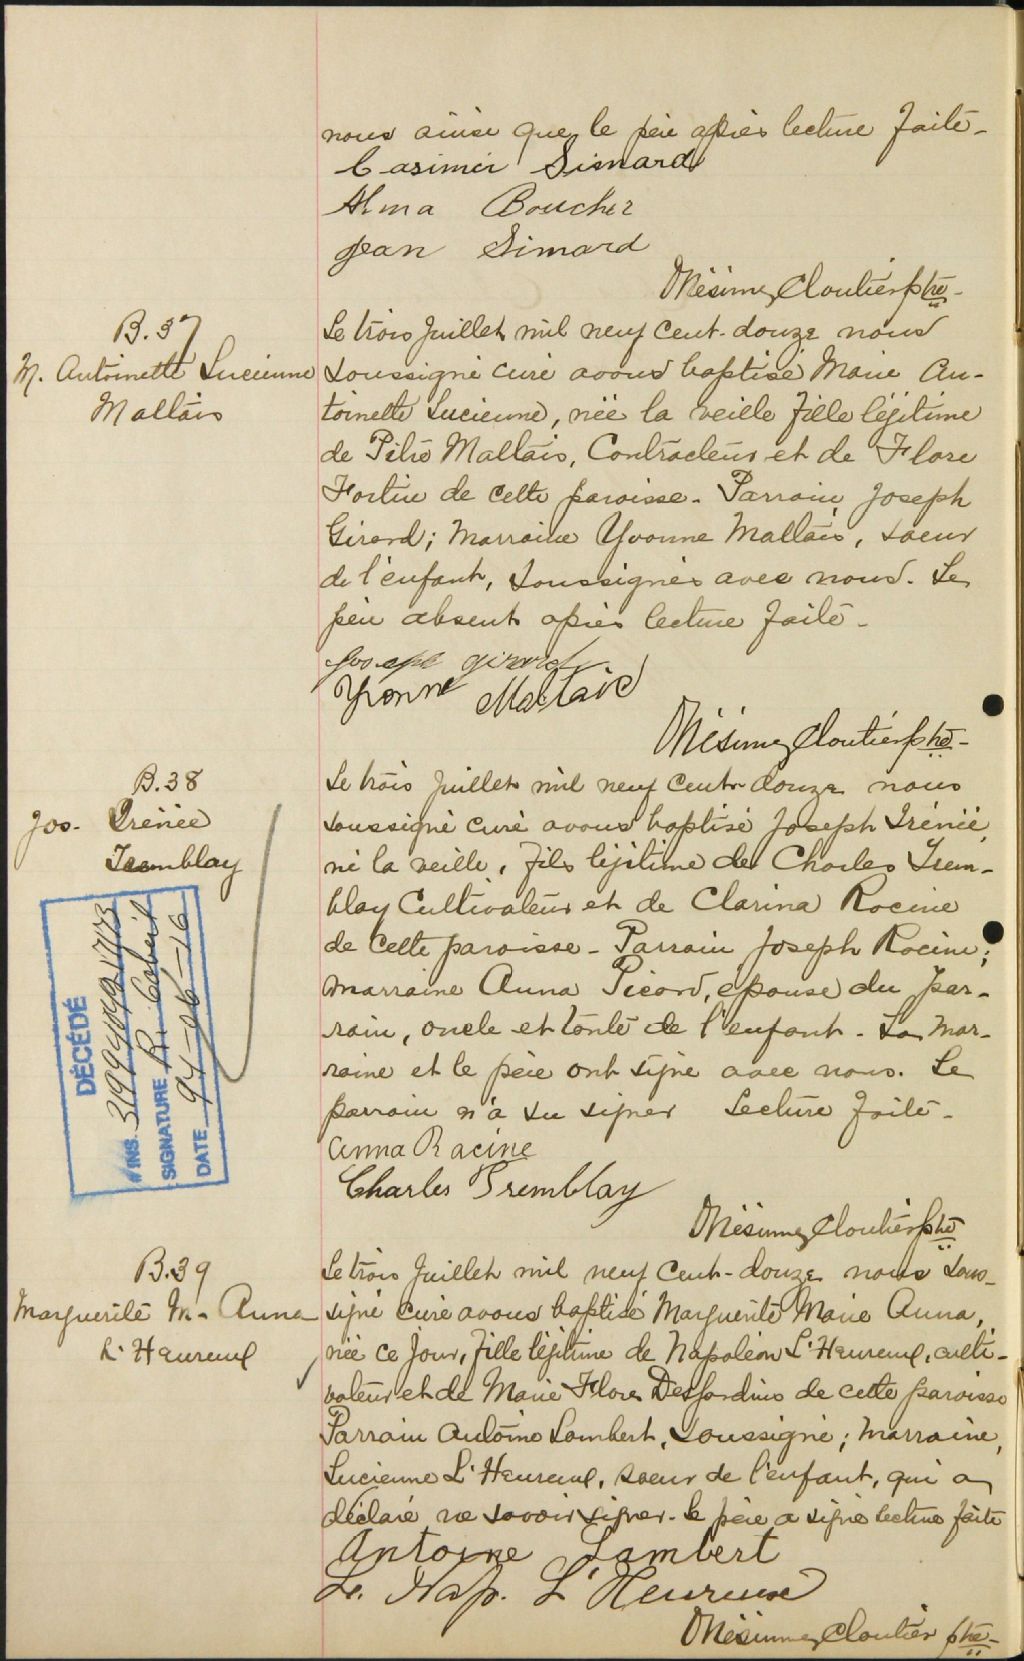 nous ainsi que le père après lecture faite-
Casimir Simard
Alma Boucher
Jean Simard
Onésime Cloutier ptre-
B.37
M. Antoinette Lucienne
Maltais
Le trois juillet mil neuf cent-douze nous
soussigné curé avons baptisé Marie An-
toinette Lucienne, née la veille fille légitime
de Pitre Maltais, Contracteur et de Flore
Fortin de cette paroisse - Parrain Joseph
Girard; Marraine Yvonne Maltais, soeur
de l'enfant, soussignés avec nous. Le
père absent après lecture faite-
Joseph Girard
Yvonne Maltais
Onésime Cloutier ptre-
B.38
Jos- Irénée
Tremblay
Le trois juillet mil neuf cent-douze nous
soussigné curé avons baptisé Joseph Irénée
né la veille, fils légitime de Charles Trem-
blay Cultivateur et de Clarina Racine
de cette paroisse - Parrain Joseph Racine;
Marraine Anna Picard, épouse du par-
rain, oncle et tante de l'enfant - La mar-
raine et le père ont signé avec nous. Le
parrain n'a su signer Lecture faite-
Anna Racine
Charles Tremblay
Onésime Cloutier ptre
DÉCÉDÉ
# INS.
SIGNATURE R.
DATE 94-06-16
B.39
Marguerite M- Anna
L'Heureux
Le trois juillet mil neuf cent-douze nous sous-
signé curé avons baptisé Marguerite Marie Anna,
née ce jour, fille légitime de Napoléon L'Heureux, culti-
vateur et de Marie Flore Desjardins de cette paroisse
Parrain Antoine Lambert, soussigné; Marraine,
Lucienne L'Heureux, soeur de l'enfant, qui a
déclaré ne savoir signer- Le père a signé lecture faite
Antoine Lambert
L. Nap. L'Heureux
Onésime Cloutier ptre-